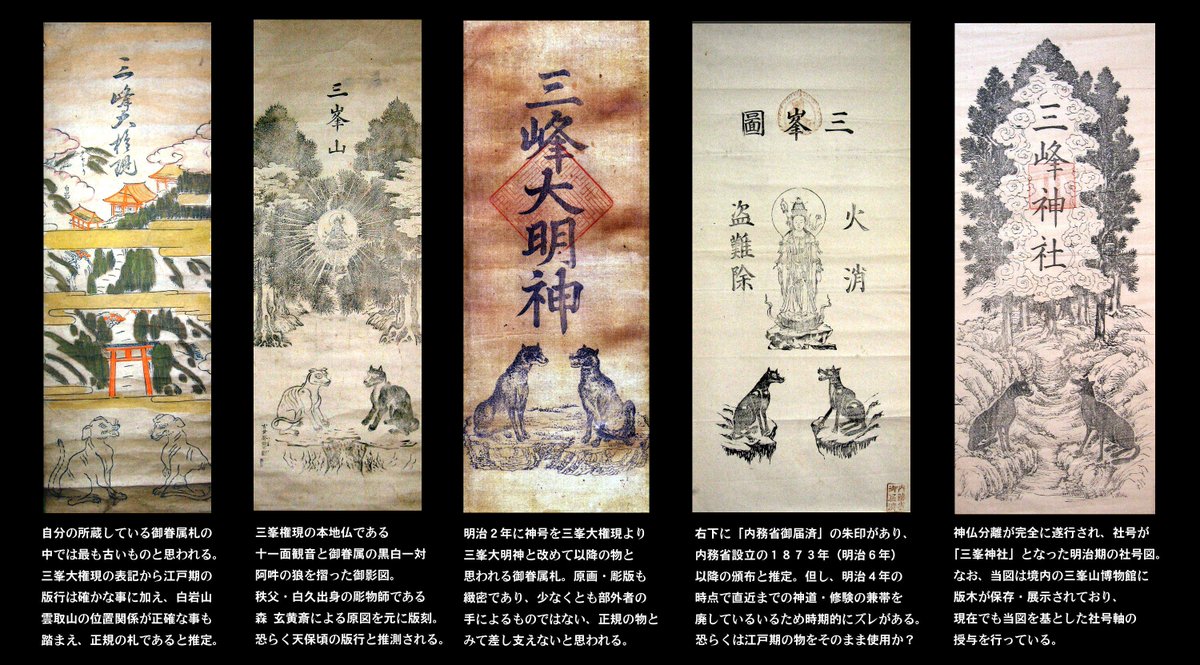 三峰大権現
三峯山
三峰大明神
三峯圖
火消
盗難除
内務省
御届済
三峰神社
自分の所蔵している御眷属札の
中では最も古いものと思われる。
三峯大権現の表記から江戸期の
版行は確かな事に加え、白岩山
雲取山の位置関係が正確な事も
踏まえ、正規の札であると推定。
三峯権現の本地仏である
十一面観音と御眷属の黒白一対
阿吽の狼を摺った御影図。
秩父・白久出身の彫物師である
森 玄黄斎による原図を元に版刻。
恐らく天保頃の版行と推測される。
明治２年に神号を三峯大権現より
三峯大明神と改めて以降の物と
思われる御眷属札。原画・彫版も
緻密であり、少なくとも部外者の
手によるものではない、正規の物と
みて差し支えないと思われる。
右下に「内務省御届済」の朱印があり、
内務省設立の１８７３年（明治６年）
以降の頒布と推定。但し、明治４年の
時点で直近までの神道・修験の兼帯を
廃しているいるため時期的にズレがある。
恐らくは江戸期の物をそのまま使用か？
神仏分離が完全に遂行され、社号が
「三峯神社」となった明治期の社号図。
なお、当図は境内の三峯山博物館に
版木が保存・展示されており、
現在でも当図を基とした社号軸の
授与を行っている。